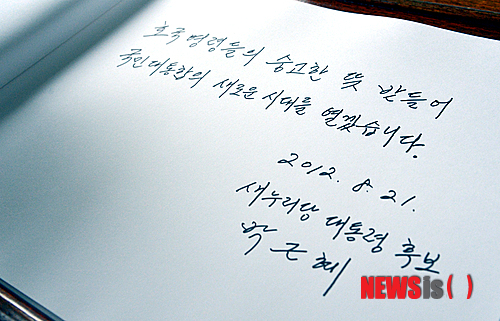 호국영령들의 숭고한 뜻 받들어
국민대통합의 새로운 시대를 열겠습니다.
2012. 8. 21.
새누리당 대통령 후보
박근혜
NEWSis( )